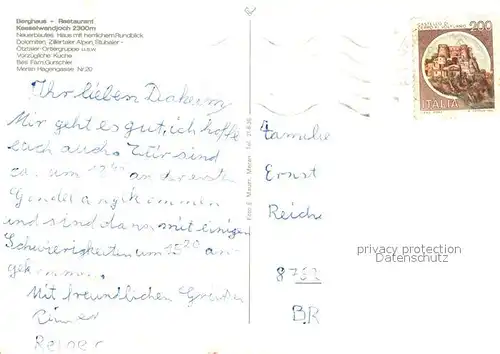 Berghaus - Restaurant
Kesselwandjoch 2300m
Neuerbautes Haus mit herrlichem Rundblick
Dolomiten, Zillertaler Alpen, Stubaier-
Ötztaler-Ortlergruppe u.s.w.
Vorzügliche Küche
Bes. Fam. Gurschler
Meran Hagengasse Nr. 20
Ihr lieben Daheim
Mir geht es gut, ich hoffe
euch auch. Wir sind
ca. um an der ersten
Gondel angekommen
und sind dann mit einigen
Schwierigkeiten um 15 20 an-
gekommen.
Mit freundlichen Grüßen
Reiner
Foto E. Mauri, Meran, Tel.
200
ITALIA
Familie
Ernst
Reiche
8752
BR
privacy protection
Datenschutz